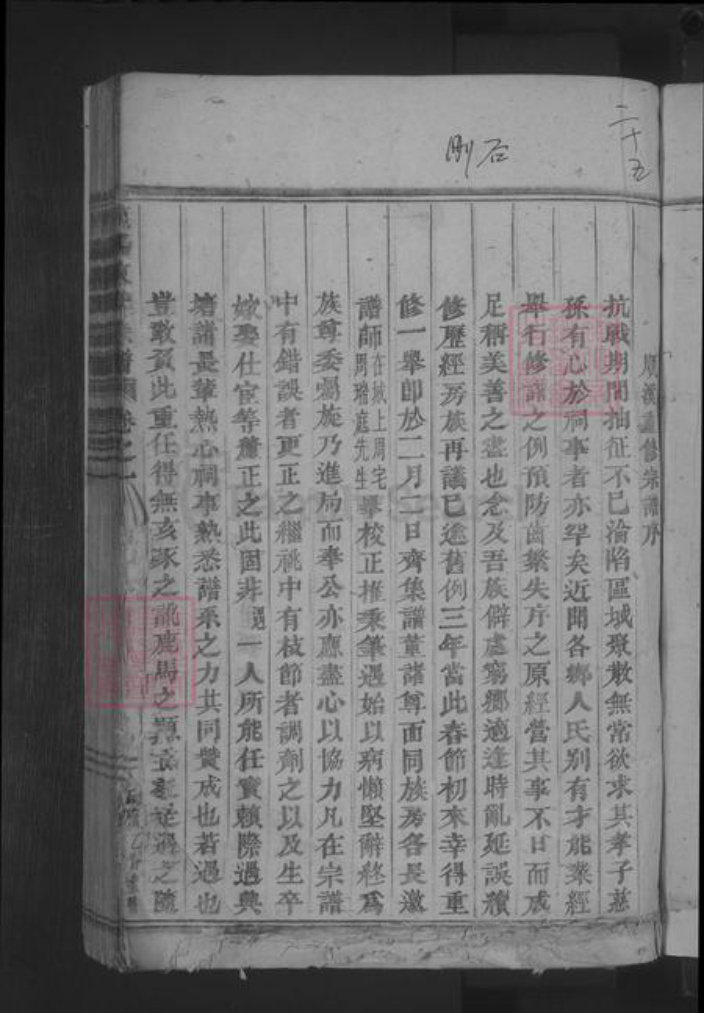 二十五
順溪重修宗譜序
抗戰期間抽征不已淪陷區域聚散無常欲求其孝子慈
孫有心於祠事者亦罕矣近聞各鄉人氏別有才能業經
舉行修譜之例預防齒繁失序之原經營其事不日而成
足稱美善之盡也念及吾族僻處窮鄉適逢時亂延誤續
修歷經房族再議已逾舊例三年當此春節初來幸得重
修一舉即於二月二日齊集譜董諸尊面同族房各長邀
譜師在城上周宅周瑞庭先生舉校正推秉筆遇始以病懶堅辭終為
族尊委囑旋乃進局而奉公亦應盡心以協力凡在宗譜
中有錯誤者更正之繼祧中有枝節者調劑之以及生卒
嫁娶仕宦等釐正之此固非遇一人所能任實賴際遇與
培諸長輩熱心祠事熟悉譜系之力共同贊成也若遇也
豈敢負此重任得無亥豕之訛鹿馬之
遇之隨
卷之一